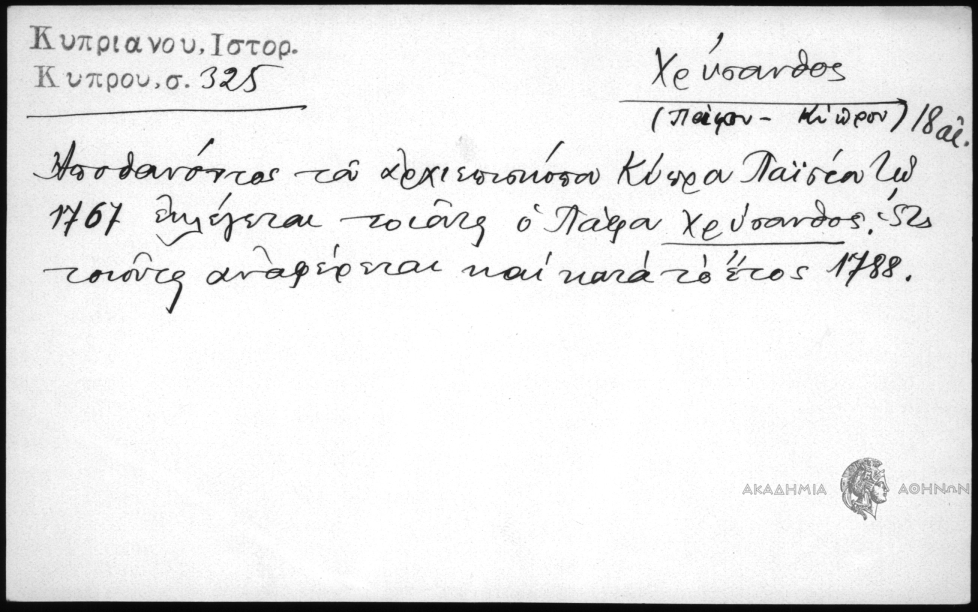 Κυπριανου, Ιστορ.
Κυπρου, σ. 325
Χρύσανθος
(Πάφου - Κύπρου) 18 αἰ.
Ἀποθανόντος τοῦ ἀρχιεπισκόπου Κύπρου Παϊσίου τῷ
1767 ἐκλέγεται τοιοῦτος ὁ Πάφου Χρύσανθος. Ὡς
τοιοῦτος ἀναφέρεται καί κατά τό ἔτος 1788.
ΑΚΑΔΗΜΙΑ ΑΘΗΝΩΝ